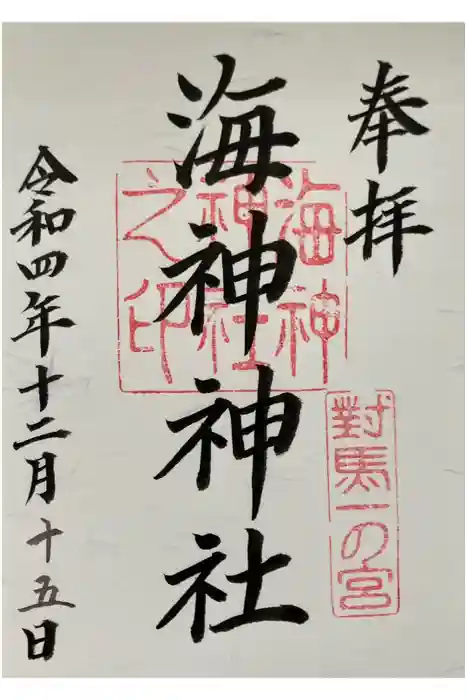 奉拝
對馬一の宮
海神神社
海神神社之印
令和四年十二月十五日